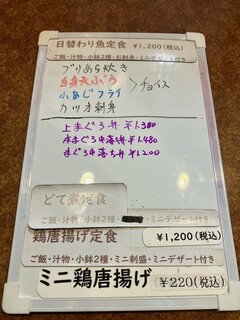 日替わり魚定食 ¥1,200(税込)
ご飯・汁物・小鉢2種・お刺身・ミニデザート付き
ブリあら炊き
白身天ぷら >チョイス
小あじフライ
カツオ刺身
上まぐろ丼 ¥1,380
まぐろ中落ち丼 ¥1,200
どて煮定食
ご飯・汁物・小鉢2種・ミニデザート付き
鶏唐揚げ定食 ¥1,200(税込)
ご飯・汁物・小鉢2種・ミニ刺盛・ミニデザート付き
ミニ鶏唐揚げ ¥220(税込)